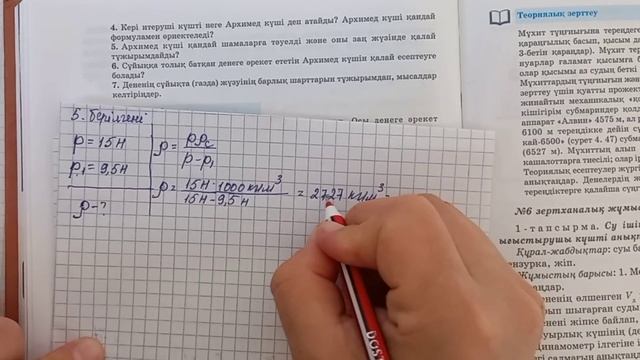 4. Кері итеруші күшті неге Архимед күші деп атайды? Архимед күші қандай
формуламен өрнектеледі?
5. Архимед күші қандай шамаларға тәуелді және оны заң жүзінде қалай
тұжырымдайды?
6. Сұйыққа толық батқан денеге әрекет ететін Архимед күшін қалай есептеуге
болады?
7. Дененің сұйықта (газда) жүзуінің барлық шарттарын тұжырымдап, мысалдар
келтіріңдер.
денеге әрекет
5. Берілгені
P = 15 Н
P₁ = 9,5 Н
ρ - ?
ρ = Pρс / P - P₁
ρ = 15 Н · 1000 кг/м³ / 15 Н - 9,5 Н = 2727 кг/м³
Теориялық зерттеу
Мұхит тұңғиығына тереңдеге
қараңғылық басып, қысым да
3-бетін қараңдар). Мұхит тер
нуарлар ғаламат қысымға б
олар қысымы аз судың беткі
Мұхиттардың тұңғиығын жән
зерттеу үшін қуатты прожект
жинайтын механикалық «қ
кішігірім субмаринер қолда
аппарат «Алвин» 4575 м, ал р
6100 м тереңдікке дейін сү
кай-6500» (сурет 4. 47) субмар
(6527 м). Мұхиттың алып
кашалоттарға тиесілі; олар 1
Теориялық сөзсетулер жүргі
анықтаңдар. Денелердің
тереңдіктерге қалайша сүңг
№6 зертханалық жұмы
1 - тапсырма. Су ішін
ығыстырушы күшті анықт
Құрал-жабдықтар: суы ба
ензурка, жіп.
Жұмыстың барысы: 1. Ме
аңдар.
ененің өлшенген V
ып шығарған суды
енені жіпке байлап,
уырлық күшін (дененің
Динамометр ілгегіне
гі салмағын анықта